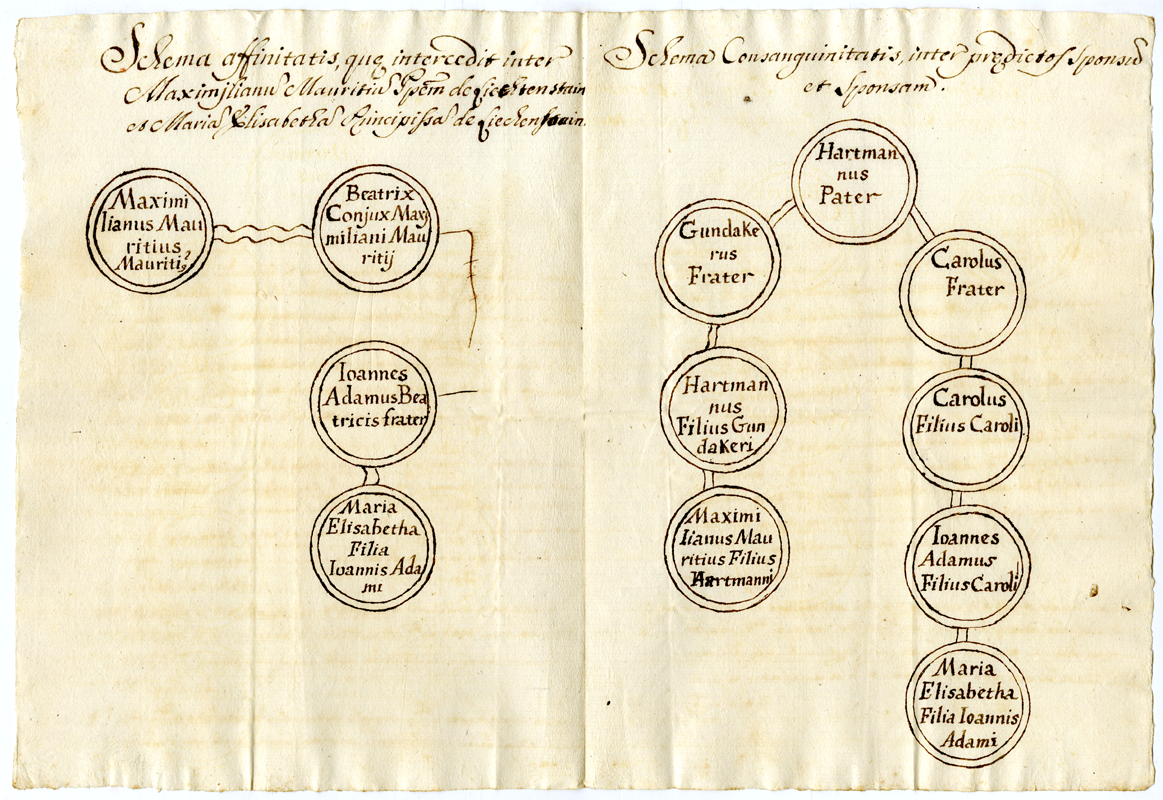 Schema affinitatis, quę intercedit inter
Maximilianũ Mauritiũ Ppem de Liechtenstain
et Mariã Elisabethã Principissã de Liechenstain.
Maximi
lianus Mau
ritius
Mauriti9
Beatrix
Conjux Maxi
miliani Mau
ritij
Ioannes
Adamus Bea
tricis frater
Maria
Elisabetha
Filia
Ioannis Ada
mi
Schema Consanguinitatis, inter prędictos Sponsũ
et Sponsam.
Hartman
nus
Pater
Gundake
rus
Frater
Hartman
nus
Filius Gun
dakeri
Maximi
lianus Mau
ritius Filius
Hartmanni
Carolus
Frater
Carolus
Filius Caroli
Ioannes
Adamus
Filius Caroli
Maria
Elisabetha
Filia Ioannis
Adami